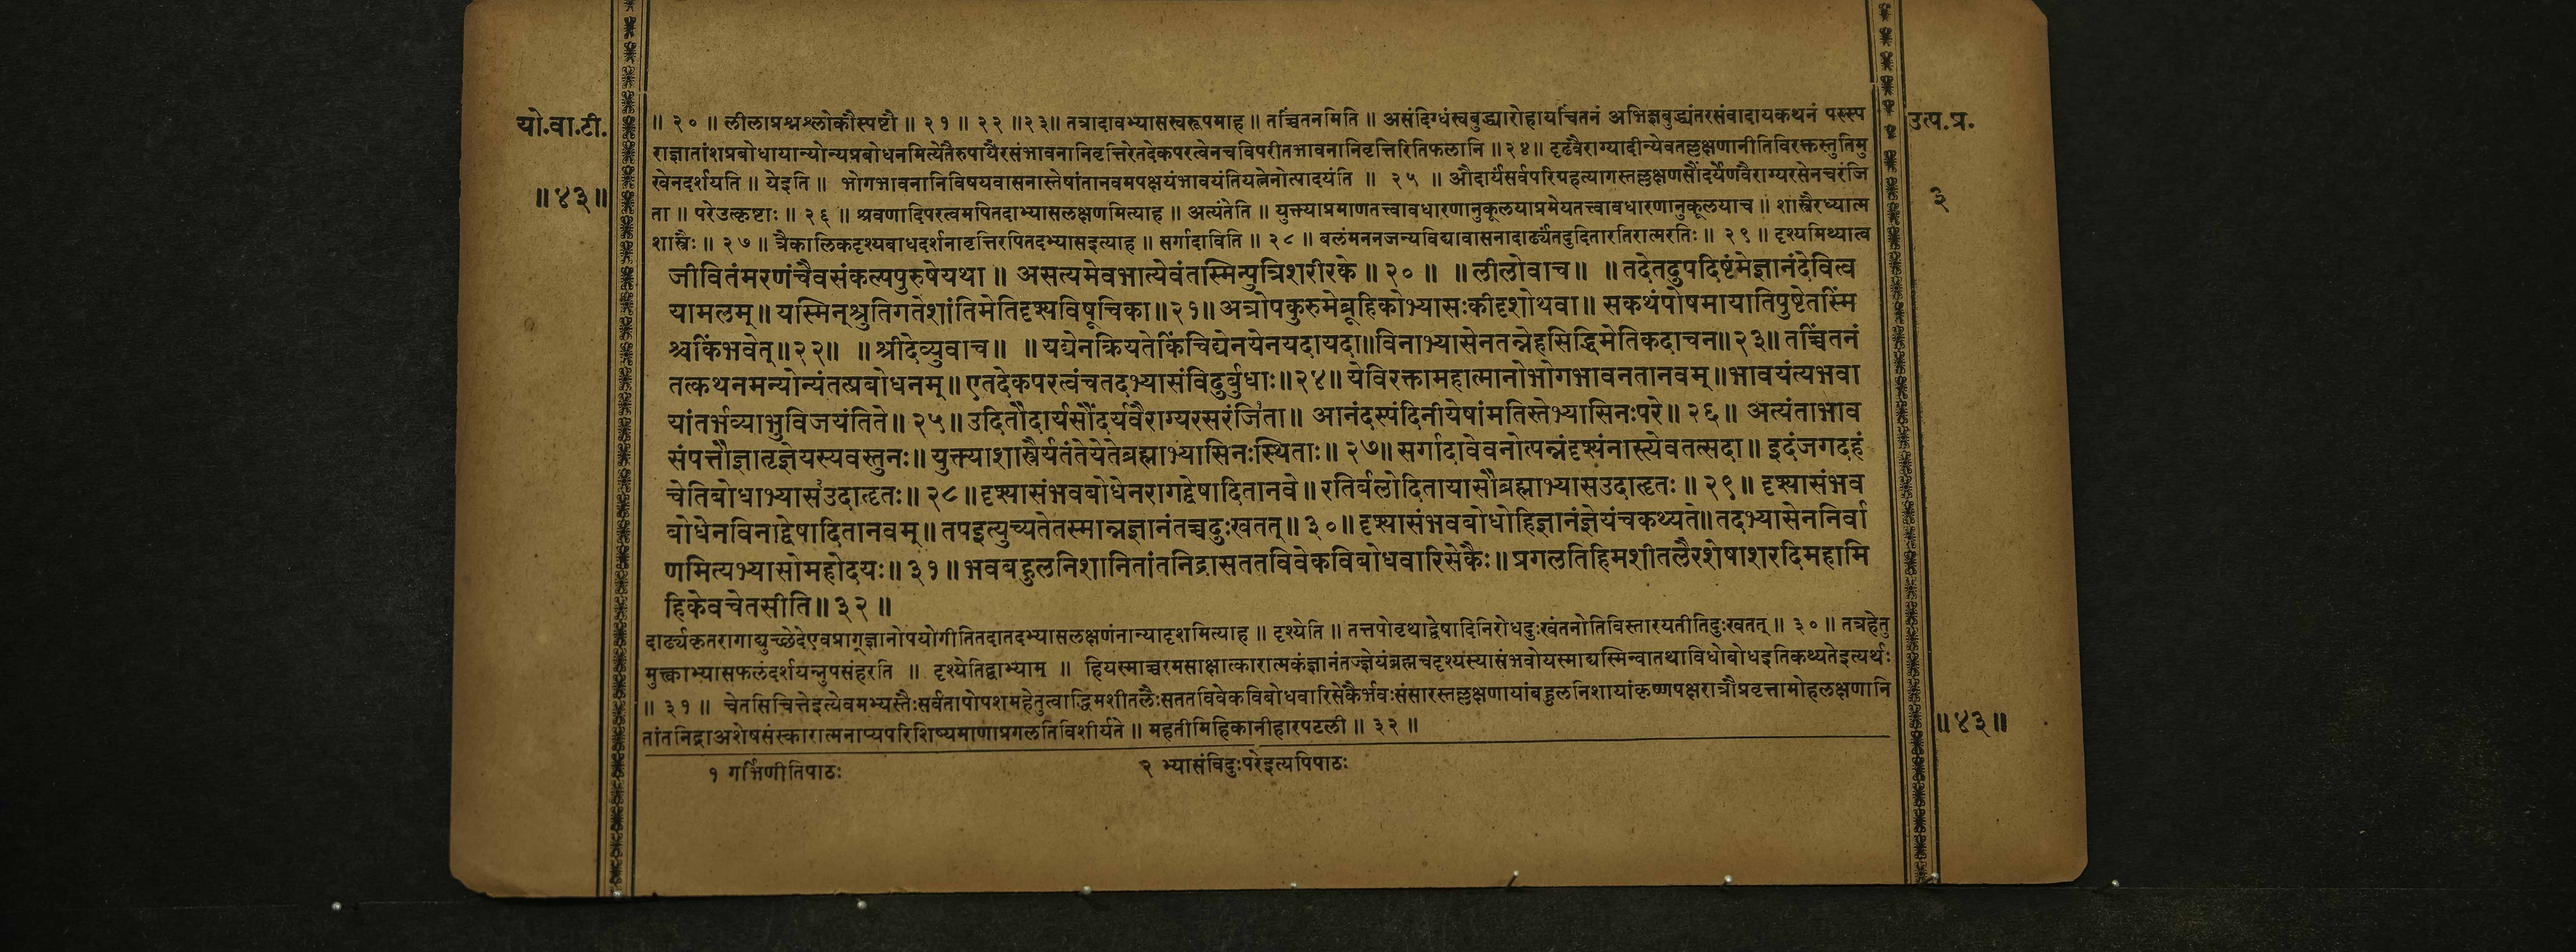 यो.वा.टी.
॥४३॥
उत्प.प्र.
३
॥ २० ॥ लीलाप्रश्नश्लोकौस्पष्टौ ॥ २१ ॥ २२ ॥२३॥ तत्रादावभ्यासस्वरूपमाह ॥ तच्चिंतनमिति ॥ असंदिग्धंस्वबुद्ध्यारोहायचिंतनं अभिज्ञबुद्ध्यंतरसंवादायकथनं परस्प
राज्ञातांशप्रबोधायान्योन्यप्रबोधनमित्येतैरुपायैरसंभावनानिवृत्तिरेतदेकपरत्वेनचविपरीतभावनानिवृत्तिरितिफलानि ॥२४॥ दृढवैराग्यादीन्येवतल्लक्षणानीतिविरक्तस्तुतिमु
खेनदर्शयति ॥ येइति ॥ भोगभावनानिविषयवासनास्तेषांतानवमपक्षयंभावयंतियत्नेनोत्पादयंति ॥ २५ ॥ औदार्यंसर्वपरिग्रहत्यागस्तल्लक्षणसौंदर्येणवैराग्यरसेनचरंजि
ता ॥ परेउत्कृष्टाः ॥ २६ ॥ श्रवणादिपरत्वमपितदाभ्यासलक्षणमित्याह ॥ अत्यंतेति ॥ युक्त्याप्रमाणतत्त्वावधारणानुकूलयाप्रमेयतत्त्वावधारणानुकूलयाच ॥ शास्त्रैरध्यात्म
शास्त्रैः ॥ २७ ॥ त्रैकालिकदृश्यबाधदर्शनावृत्तिरपितदभ्यासइत्याह ॥ सर्गादाविति ॥ २८ ॥ बलंमननजन्यविद्यावासनादार्ढ्यंतदुदितारतिरात्मरतिः ॥ २९ ॥ दृश्यमिथ्यात्व
जीवितंमरणंचैवसंकल्पपुरुषेयथा ॥ असत्यमेवभात्येवंतस्मिन्पुत्रिशरीरके ॥ २० ॥ ॥ लीलोवाच ॥ ॥ तदेतदुपदिष्टंमेज्ञानंदेवित्व
यामलम् ॥ यस्मिन्श्रुतिगतेशांतिमेतिदृश्यविषूचिका ॥२१॥ अत्रोपकुरुमेब्रूहिकोभ्यासःकीदृशोथवा ॥ सकथंपोषमायातिपुष्टेतस्मिं
श्चकिंभवेत् ॥२२॥ ॥ श्रीदेव्युवाच ॥ ॥ यद्येनक्रियतेकिंचिद्येनयेनयदायदा ॥ विनाभ्यासेनतन्नेहसिद्धिमेतिकदाचन ॥२३॥ तच्चिंतनं
तत्कथनमन्योन्यंतत्प्रबोधनम् ॥ एतदेकपरत्वंचतदभ्यासंविदुर्बुधाः ॥२४॥ येविरक्तामहात्मानोभोगभावनतानवम् ॥ भावयंत्यभवा
यांतर्भव्याभुविजयंतिते ॥ २५ ॥ उदितौदार्यसौंदर्यवैराग्यरसरंजि१ता ॥ आनंदस्पंदिनीयेषांमतिस्तेभ्यासिनःपरे ॥ २६ ॥ अत्यंताभाव
संपत्तौज्ञातृज्ञेयस्यवस्तुनः ॥ युक्त्याशास्त्रैर्यतंतेयेतेब्रह्माभ्यासिनःस्थिताः ॥ २७॥ सर्गादावेवनोत्पन्नंदृश्यंनास्त्येवतत्सदा ॥ इदंजगदहं
चेतिबोधाभ्यास२उदाहृतः ॥ २८ ॥ दृश्यासंभवबोधेनरागद्वेषादितानवे ॥ रतिर्बलोदितायासौब्रह्माभ्यासउदाहृतः ॥ २९ ॥ दृश्यासंभव
बोधेनविनाद्वेषादितानवम् ॥ तपइत्युच्यतेतस्मान्नज्ञानंतच्चदुःखतत् ॥ ३० ॥ दृश्यासंभवबोधोहिज्ञानंज्ञेयंचकथ्यते ॥ तदभ्यासेननिर्वा
णमित्यभ्यासोमहोदयः ॥ ३१ ॥ भवबहुलनिशानितांतनिद्रासततविवेकविबोधवारिसेकैः ॥ प्रगलतिहिमशीतलैरशेषाशरदिमहामि
हिकेवचेतसीति ॥ ३२ ॥
दार्ढ्यकृतरागाद्युच्छेदेएवप्राग्ज्ञानोपयोगीतितदातदभ्यासलक्षणंनान्यादृशमित्याह ॥ दृश्येति ॥ तत्तपोवृथाद्वेषादिनिरोधदुःखंतनोतिविस्तारयतीतिदुःखतत् ॥ ३० ॥ तत्रहेतु
मुक्त्वाभ्यासफलंदर्शयन्नुपसंहरति ॥ दृश्येतिद्वाभ्याम् ॥ हियस्माच्चरमसाक्षात्कारात्मकंज्ञानंतज्ज्ञेयंब्रह्मचदृश्यस्यासंभवोयस्माद्यस्मिन्वातथाविधोबोधइतिकथ्यतेइत्यर्थः
॥ ३१ ॥ चेतसिचित्तेइत्येवमभ्यस्तैःसर्वतापोपशमहेतुत्वाद्धिमशीतलैःसततविवेकविबोधवारिसेकैर्भवःसंसारस्तल्लक्षणायांबहुलनिशायांकृष्णपक्षरात्रौप्रवृत्तामोहलक्षणानि
तांतनिद्राअशेषसंस्कारात्मनाप्यपरिशिष्यमाणाप्रगलतिविशीर्यते ॥ महतीमिहिकानीहारपटली ॥ ३२ ॥
॥४३॥
१ गर्भिणीतिपाठः २ भ्यासंविदुःपरेइत्यपिपाठः